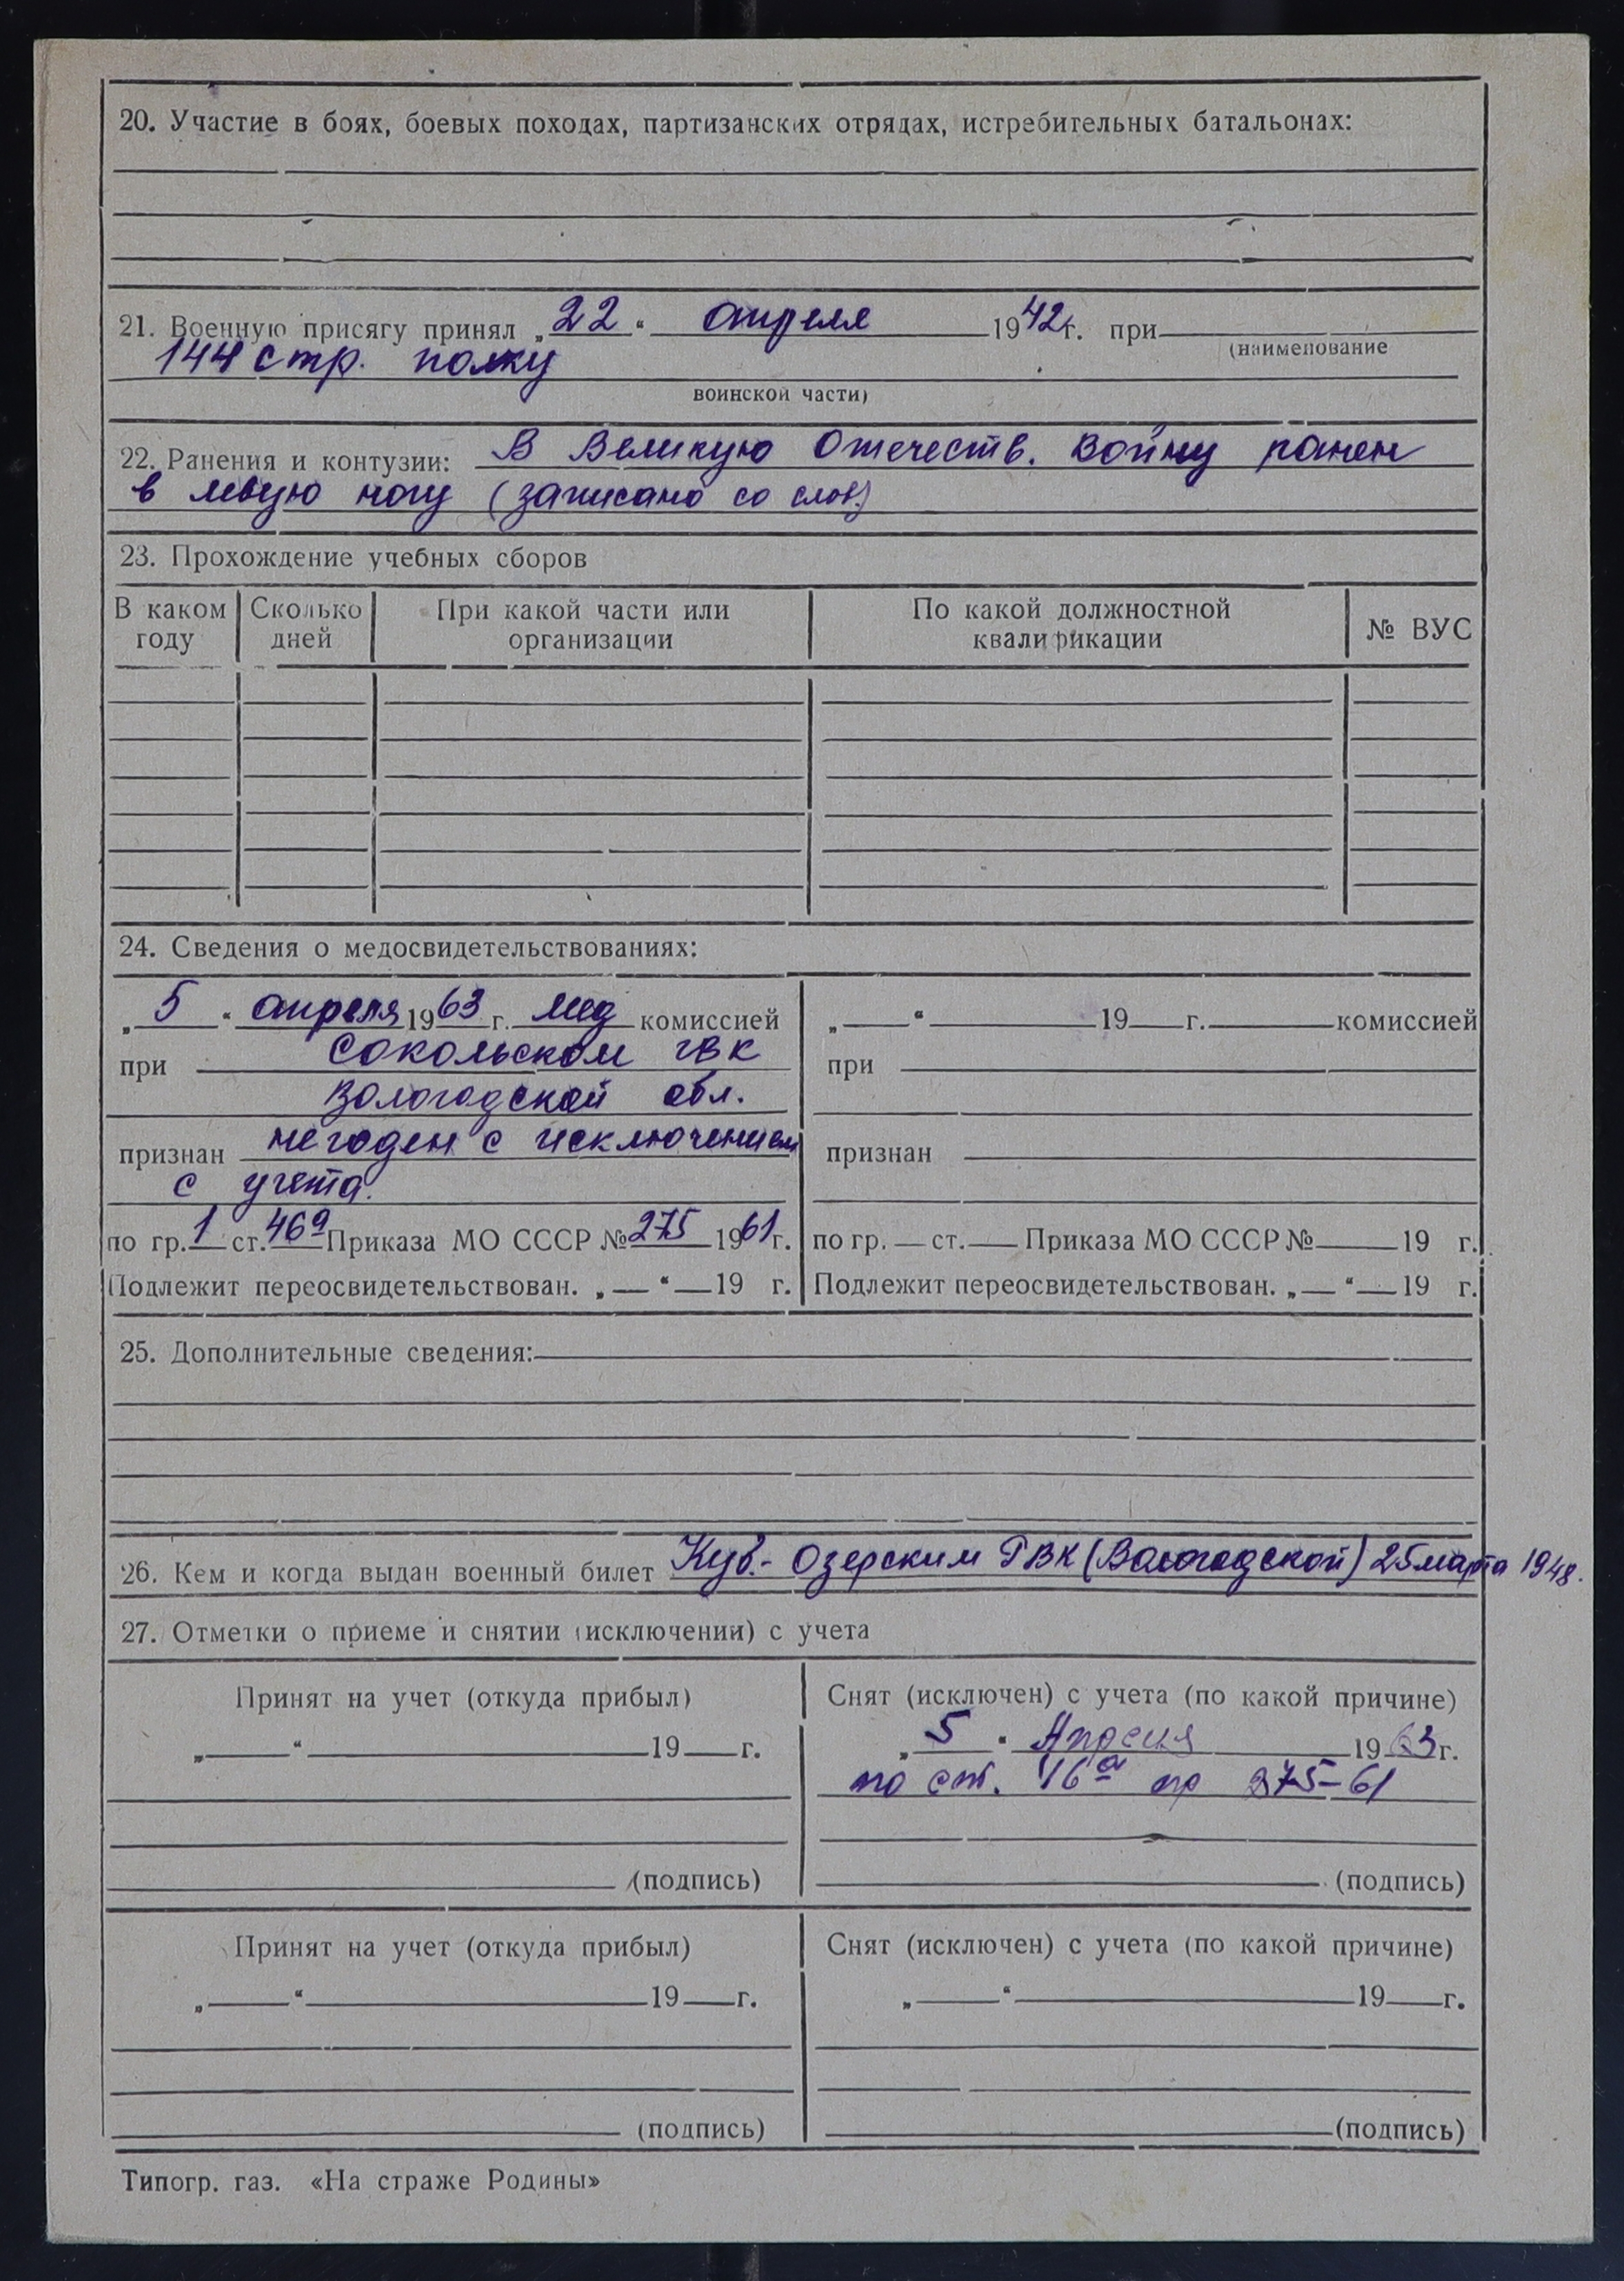 20. Участие в боях, боевых походах, партизанских отрядах, истребительных батальонах:
21. Военную присягу принял „22“ апреля 1942г. при
(наименование
144 стр. полку
воинской части)
22. Ранения и контузии: В Великую Отечеств. войну ранен
в левую ногу (записано со слов)
23. Прохождение учебных сборов
В каком году | Сколько дней | При какой части или организации | По какой должностной квалификации | № ВУС
24. Сведения о медосвидетельствованиях:
„5“ апреля 1963 г. мед комиссией
при Сокольском ГВК
Вологодской обл.
признан не годен с исключением
с учета.
по гр. 1 ст. 46а Приказа МО СССР № 275 1961г.
Подлежит переосвидетельствован. „ “ 19 г.
„ “ 19 г. комиссией
при
признан
по гр. ст. Приказа МО СССР № 19 г.
Подлежит переосвидетельствован. „ “ 19 г.
25. Дополнительные сведения:
26. Кем и когда выдан военный билет Куб.-Озерским РВК (Вологодской) 25 марта 1948.
27. Отметки о приеме и снятии (исключении) с учета
Принят на учет (откуда прибыл)
„ “ 19 г.
(подпись)
Снят (исключен) с учета (по какой причине)
„5“ Апреля 1963г.
по ст. 46а пр 275-61
(подпись)
Принят на учет (откуда прибыл)
„ “ 19 г.
(подпись)
Снят (исключен) с учета (по какой причине)
„ “ 19 г.
(подпись)
Типогр. газ. «На страже Родины»